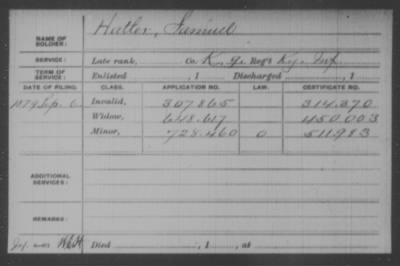 NAME OF SOLDIER: Hatler, Samuel
SERVICE: Late rank, Co. K, Reg't Ky. Inf.
TERM OF SERVICE: Enlisted , 1 Discharged , 1
DATE OF FILING. CLASS. APPLICATION NO. LAW. CERTIFICATE NO.
1879 Sep. 6 Invalid, 307.865 314.370
Widow, 648.617 450.003
Minor, 728.460 0 511.983
ADDITIONAL SERVICES:
REMARKS:
Died , 1 , at